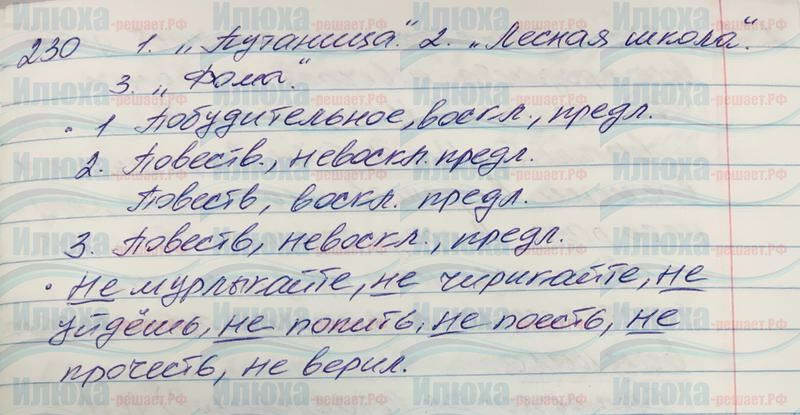 230 1. „Путаница". 2. „Лесная школа".
3. „Фома".
• 1 Побудительное, воскл., предл.
2. Повеств., невоскл. предл.
Повеств, воскл. предл.
3. Повеств, невоскл., предл.
• Не мурлыкайте, не чирикайте, не
уйдёшь, не попить, не поесть, не
прочесть, не верил.